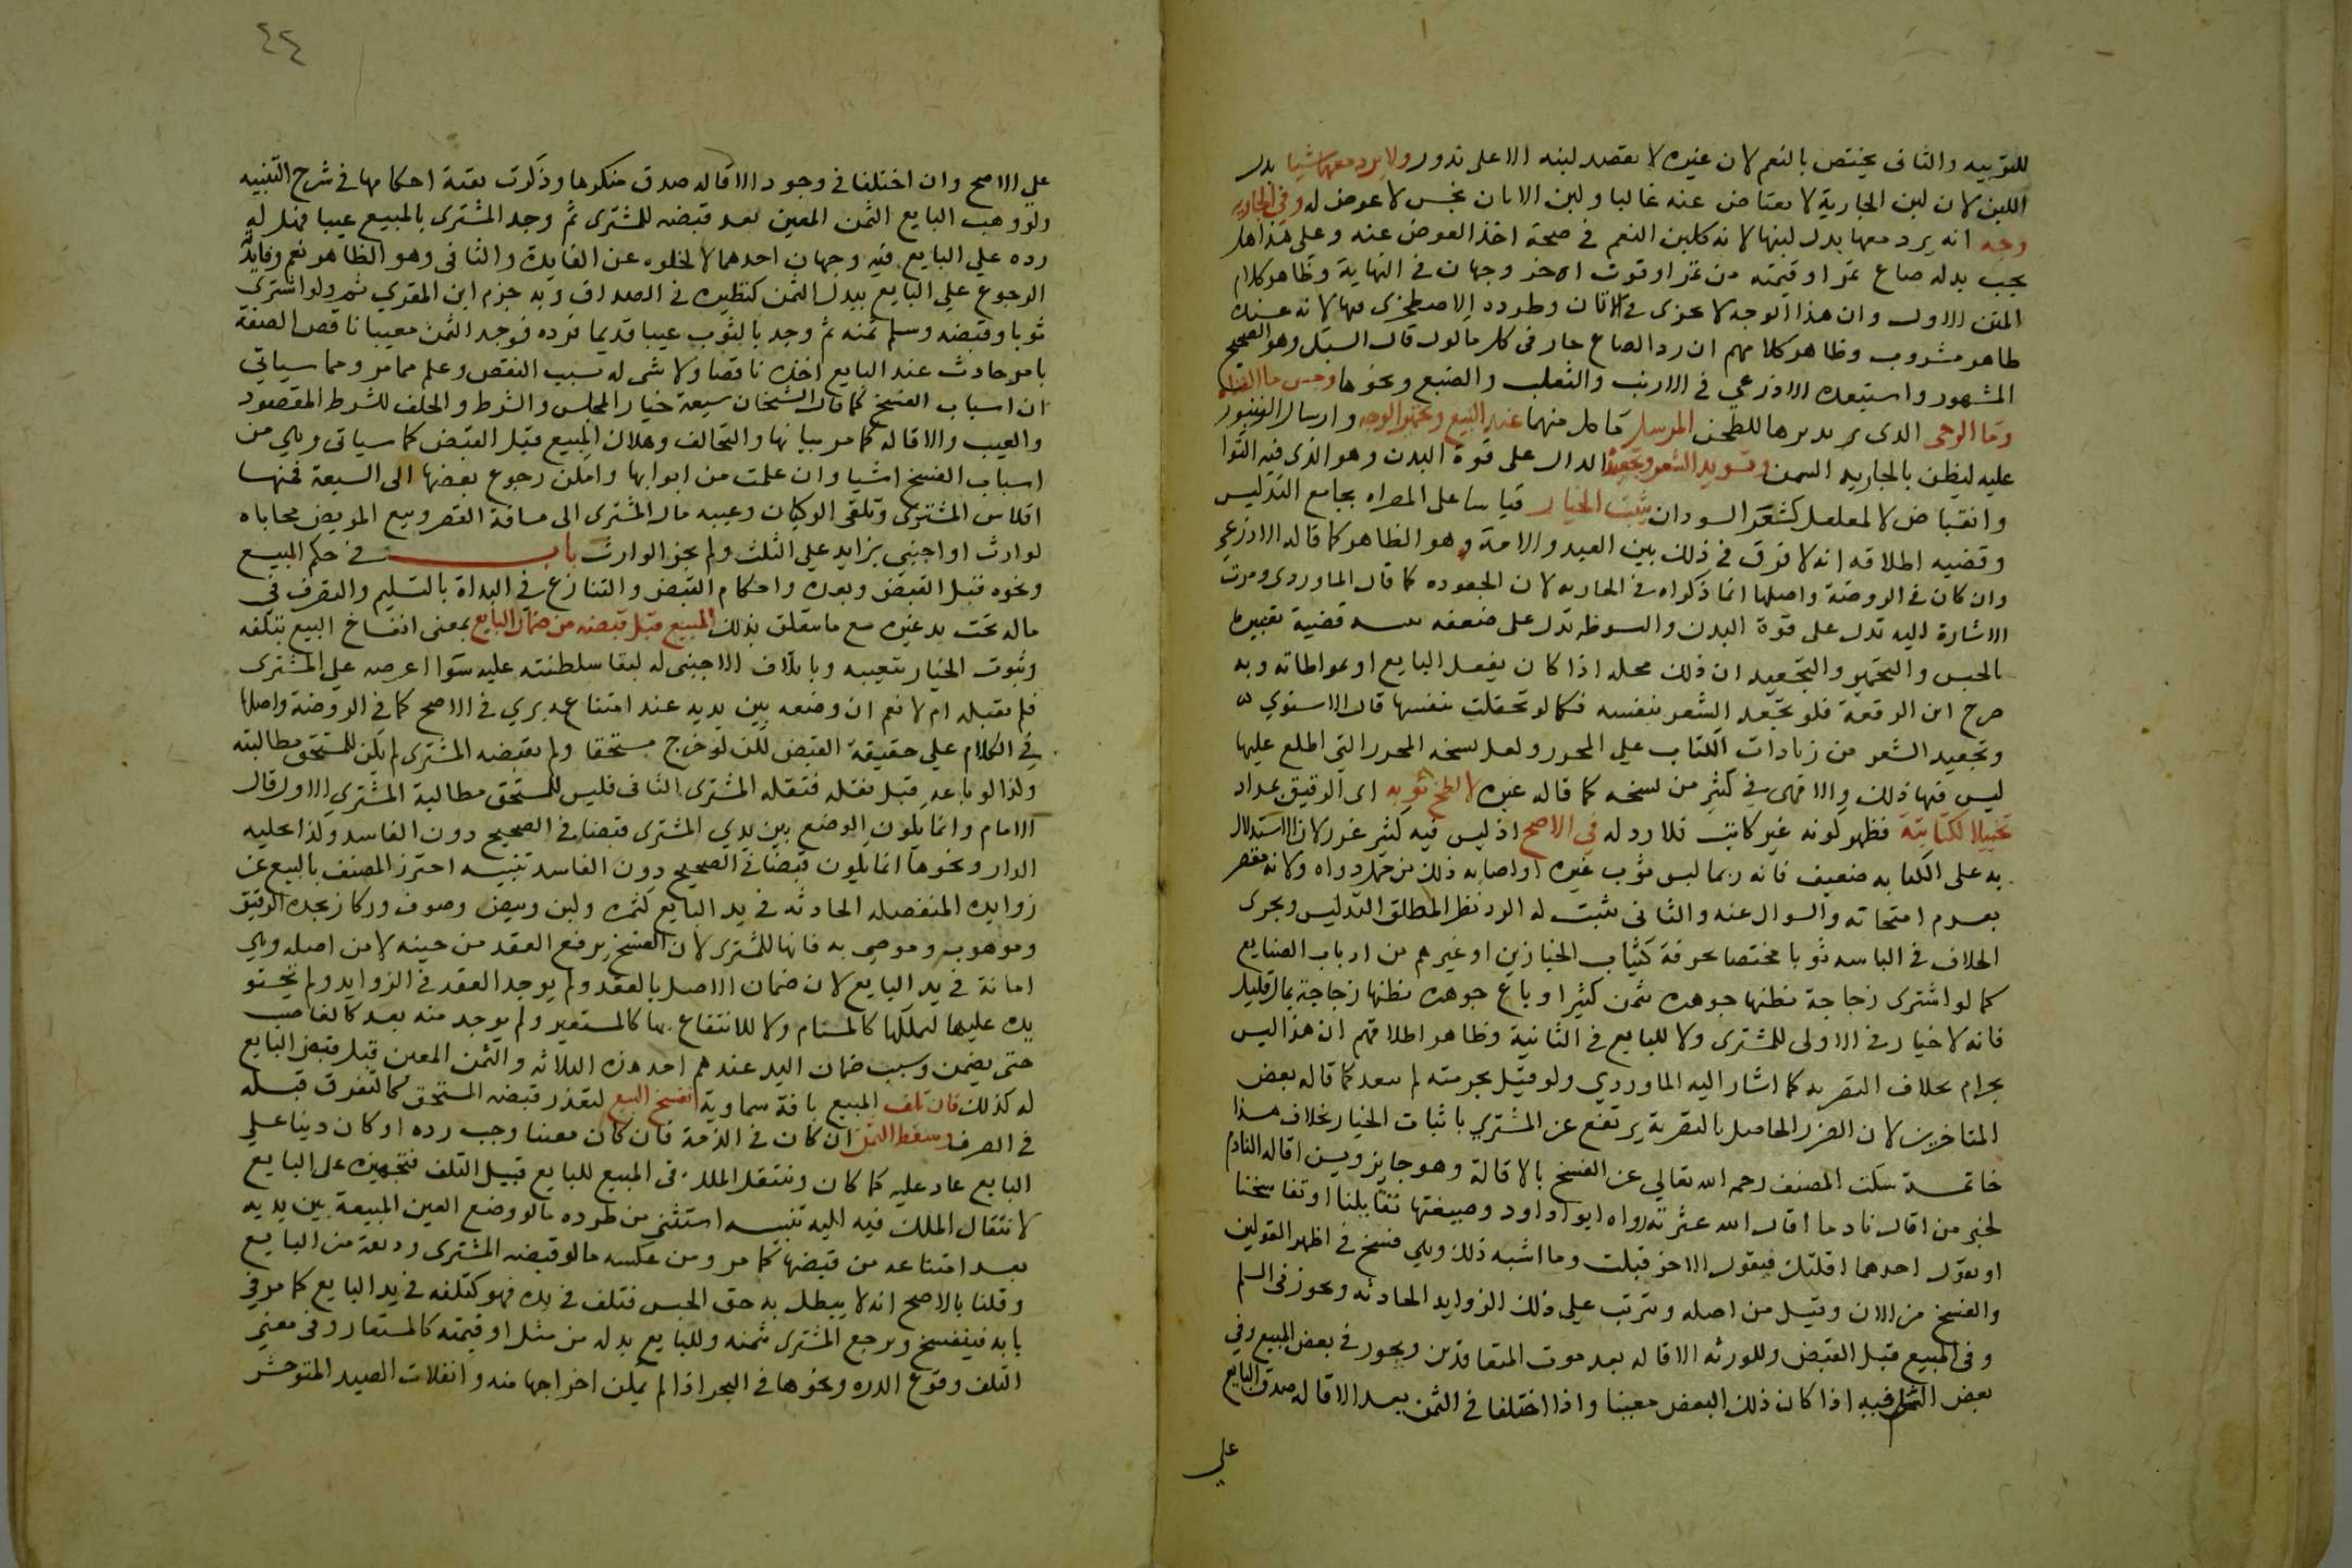 للتقربيه والثاني يختص بالنعم لان غيره لا يقصد لبنه الا على ندور ولا يرد معهما شيا بدل
اللبن لان لبن الجارية لا يعتاض عنه غالبا ولبن الاتان نجس لا عوض له وفي الجاريه
وجه انه يرد معها بدل لبنها لانه كلبن النعم في صحة اخذ العوض عنه وعلى هذا هل
يجب بدله صاع تمر او قيمته من تمر او قوت اخر وجهان في النهاية وظاهر كلام
المتن الاول وان هذا الوجه لا يجري في الاتان وطرده الاصطخري فيها لانه عنده
طاهر مشروب وظاهر كلامهم ان رد الصاع جار في كل ماكول قال السبكي وهو الصحيح
المشهور واستبعده الاذرعي في الارنب والثعلب والضبع ونحوها وحبس ما القناة
وما الرحى الذي يديرها للطحن المرسل ما كل منهما عند البيع وتحمير الوجه وارسال الزنبور
عليه ليظن بالجاريه السمن وتسويد الشعر وتجعيده الدال على قوة البدن وهو الذي فيه التوا
وانقباض لا المفلفل كشعر السودان يثبت الخيار قياسا على المصراه بجامع التدليس
وقضيه اطلاقه انه لا فرق في ذلك بين العبد والامة وهو الظاهر كما قاله الاذرعي
وان كان في الروضة واصلها انما ذكراه في الجاريه لان الجعوده كما قال الماوردي ومرت
الاشارة اليه تدل على قوة البدن والسبوطه تدل على ضعفه تنبيه قضية تعبيره
بالحبس والتحمير والتجعيد ان ذلك محله اذا كان بفعل البايع او بمواطاته وبه
صرح ابن الرفعة فلو تجعد الشعر بنفسه فكما لو تحفلت بنفسها قال الاسنوي
وتجعيد الشعر من زيادات الكتاب على المحرر ولعل نسخه المحرر التي اطلع عليها
ليس فيها ذلك والا فهي في كثير من نسخه كما قاله غيره لا لطخ ثوبه اي الرقيق بمداد
تخييلا لكتابته فظهر كونه غير كاتب فلا رد له في الاصح اذ ليس فيه كثير غرر لان الاستدلال
به على الكتابه ضعيف فانه ربما لبس ثوب غيره او اصابه ذلك من حمل دواه ولانه مقصر
بعدم امتحانه والسوال عنه والثاني يثبت له الرد نظرا لمطلق التدليس ويجري
الخلاف في الباسه ثوبا مختصا بحرفة كثياب الخبازين او غيرهم من ارباب الصنايع
كما لو اشترى زجاجة يظنها جوهره بثمن كثير او باع جوهره يظنها زجاجة بمال قليل
فانه لا خيار في الاولى للمشتري ولا للبايع في الثانية وظاهر اطلاقهم ان هذا ليس
بحرام بخلاف التصريه كما اشار اليه الماوردي ولو قيل بحرمته لم يبعد كما قاله بعض
المتاخرين لان الضرر الحاصل بالتصرية يرتفع عن المشتري باثبات الخيار بخلاف هذا
خاتمة سكت المصنف رحمه الله تعالى عن الفسخ بالاقالة وهو جايز ويسن اقاله النادم
لخبر من اقال نادما اقال الله عثرته رواه ابو داود وصيغتها تقايلنا او تفاسخنا
او يقول احدهما اقلتك فيقول الاخر قبلت وما اشبه ذلك وهي فسخ في اظهر القولين
والفسخ من الان وقيل من اصله ويترتب على ذلك الزوايد الحادثه ويجوز في السلم
وفي المبيع قبل القبض وللورثه الاقاله بعد موت المتعاقدين ويجوز في بعض المبيع وفي
بعض المسلم فيه اذا كان ذلك البعض معينا واذا اختلفا في الثمن بعد الاقاله صدق البايع
على
٤٤
على الاصح وان اختلفا في وجود الاقاله صدق منكرها وذكرت بقية احكامها في شرح التنبيه
ولو وهب البايع الثمن المعين بعد قبضه للمشتري ثم وجد المشتري بالمبيع عيبا فهل له
رده على البايع فيه وجهان احدهما لا لخلوه عن الفايده والثاني وهو الظاهر نعم وفايدته
الرجوع على البايع ببدل الثمن كنظيره في الصداق وبه جزم ابن المقري ثم ولو اشترى
ثوبا وقبضه وسلم ثمنه ثم وجد بالثوب عيبا قديما فرده فوجد الثمن معيبا ناقص الصفة
بامر حادث عند البايع اخذه ناقصا ولا شي له بسبب النقص وعلم مما مر ومما سياتي
ان اسباب الفسخ كما قال الشيخان سبعة خيار المجلس والشرط والخلف للشرط المقصود
والعيب والاقاله كما مر بيانها والتحالف وهلاك المبيع قبل القبض كما سياتي وبقي من
اسباب الفسخ اشيا وان علمت من ابوابها وامكن رجوع بعضها الى السبعة فمنها
افلاس المشتري وتلقي الركبان وغيبه مال المشتري الى مسافة القصر وبيع المريض محاباه
لوارث او اجنبي بزايد على الثلث ولم يجز الوارث باب في حكم المبيع
ونحوه قبل القبض وبعده واحكام القبض والتنازع في البداة بالتسليم والتصرف في
ماله تحت يد غيره مع ما يتعلق بذلك المبيع قبل قبضه من ضمان البايع بمعنى انفساخ البيع بتلفه
وثبوت الخيار بتعيبه وباتلاف الاجنبي له لبقا سلطنته عليه سوا اعرضه على المشتري
فلم يقبله ام لا نعم ان وضعه بين يديه عند امتناعه بري في الاصح كما في الروضة واصلها
في الكلام على حقيقة القبض لكن لو خرج مستحقا ولم يقبضه المشتري لم يكن للمستحق مطالبته
وكذا لو باعه قبل نقله فنقله المشتري الثاني فليس للمستحق مطالبة المشتري الاول قال
الامام وانما يكون الوضع بين يدي المشتري قبضا في الصحيح دون الفاسد وكذا تخليه
الدار ونحوها انما يكون قبضا في الصحيح دون الفاسد تنبيه احترز المصنف بالمبيع عن
زوايده المنفصله الحادثه في يد البايع كثمره ولبن وبيض وصوف وركاز يجده الرقيق
وموهوب وموصى به فانها للمشتري لان الفسخ يرفع العقد من حينه لا من اصله وهي
امانة في يد البايع لان ضمان الاصل بالعقد ولم يوجد العقد في الزوايد ولم تحتو
يده عليها ليملكها كالمستام ولا للانتفاع بها كالمستعير ولم يوجد منه تعد كالغاصب
حتى يضمن وسبب ضمان اليد عندهم احد هذه الثلاثه والثمن المعين قبل قبض البايع
له كذلك فان تلف المبيع بافة سماوية انفسخ البيع لتعذر قبضه المستحق كالتفرق قبله
في الصرف وسقط الثمن ان كان في الذمة فان كان معينا وجب رده او كان دينا على
البايع عاد عليه كما كان وينتقل الملك في المبيع للبايع قبيل التلف فتجهيزه على البايع
لانتقال الملك فيه اليه تنبيه استثني من طرده ما لو وضع العين المبيعة بين يديه
بعد امتناعه من قبضها كما مر ومن عكسه ما لو قبضه المشتري وديعة من البايع
وقلنا بالاصح انه لا يبطل به حق الحبس فتلف في يده فهو كتلفه في يد البايع كما مر في
بابه فينفسخ ويرجع المشتري بثمنه وللبايع بدله من مثل او قيمته كالمستعار وفي معنى
التلف وقوع الدره ونحوها في البحر اذا لم يمكن اخراجها منه وانفلات الصيد المتوحش